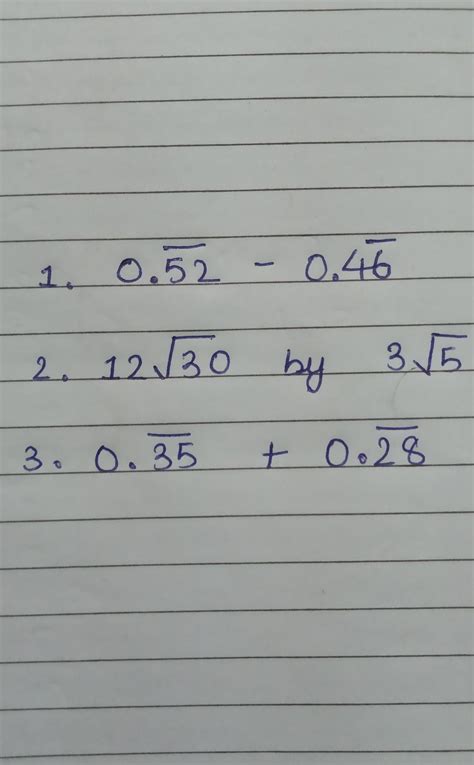 1. 0.5̅2̅ - 0.46̅
2. 12√30 by 3√5
3. 0.3̅5̅ + 0.2̅8̅